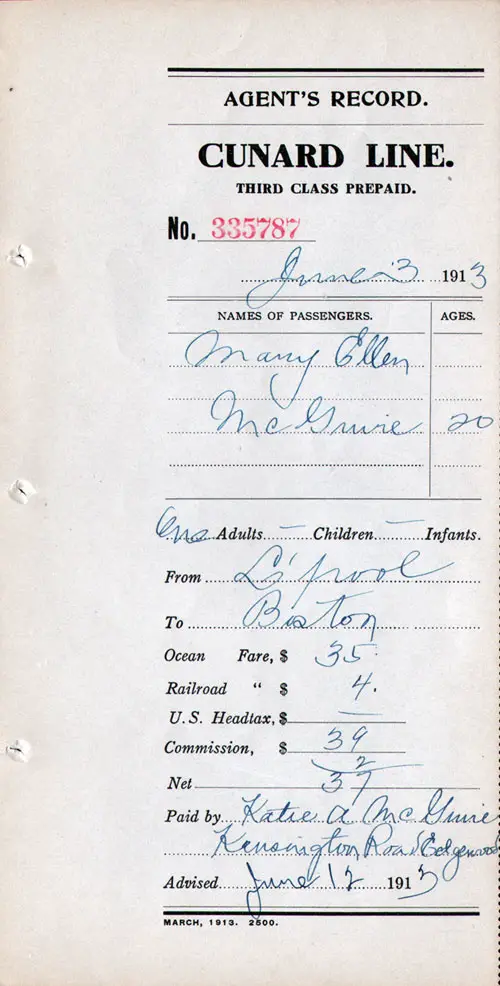 AGENT'S RECORD.
CUNARD LINE.
THIRD CLASS PREPAID.
No. 335787
June 3 1913
NAMES OF PASSENGERS. AGES.
Mary Ellen
McGuire 20
One Adults. — Children. — Infants.
From L'pool
To Boston
Ocean Fare, $ 35.
Railroad “ $ 4.
U.S. Headtax, $ —
Commission, $ 39
2
Net 37
Paid by Katie A McGuire
Kensington Road Edgewood
Advised June 12 1913
MARCH, 1913. 2500.